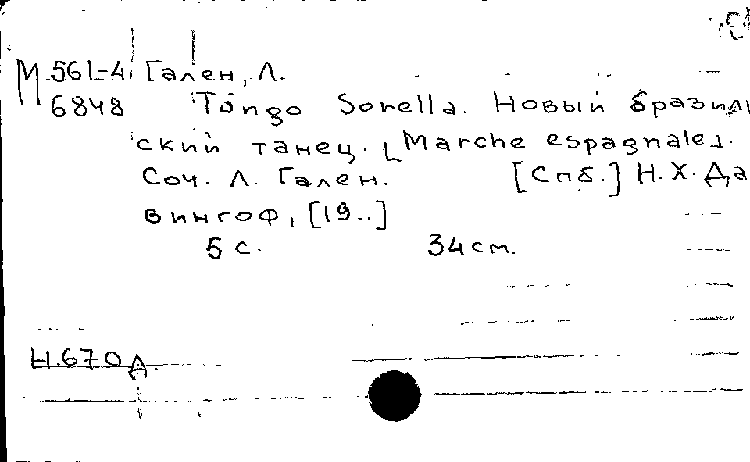 М 561-4 Гален, Л.
6848 Tongo Sorella. Новый бразил
ский танец. [Marche espagnole].
Соч. Л. Гален. [Спб.] Н.Х. Да
вингоф, [19..]
5 с. 34 см.
Н.670 Д.